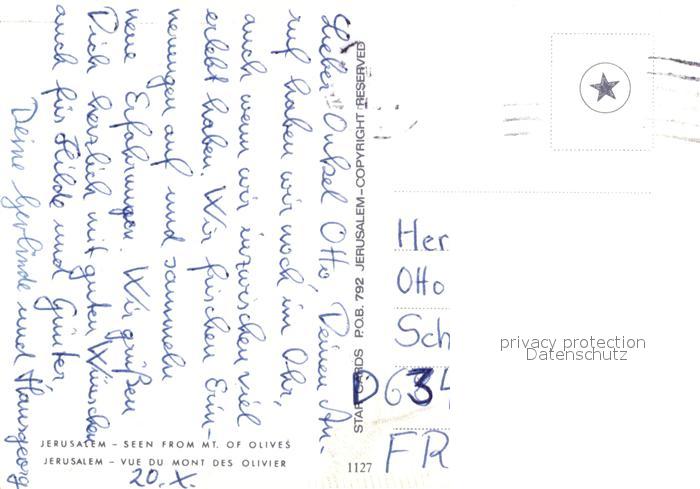 Lieber Onkel Otto, Deinen An-
ruf haben wir noch im Ohr,
auch wenn wir inzwischen viel
erlebt haben. Wir frischen Erin-
nerungen auf und sammeln
neue Erfahrungen. Wir grüßen
Dich herzlich mit guten Wünschen
auch für Hilde und Günter,
Deine Gerlinde und Hansgeorg
JERUSALEM – SEEN FROM MT. OF OLIVES
JERUSALEM – VUE DU MONT DES OLIVIER
20. X.
1127
STAR CARDS P.O.B. 792 JERUSALEM – COPYRIGHT RESERVED
Her
Otto
Sch
D 634
FR
privacy protection
Datenschutz